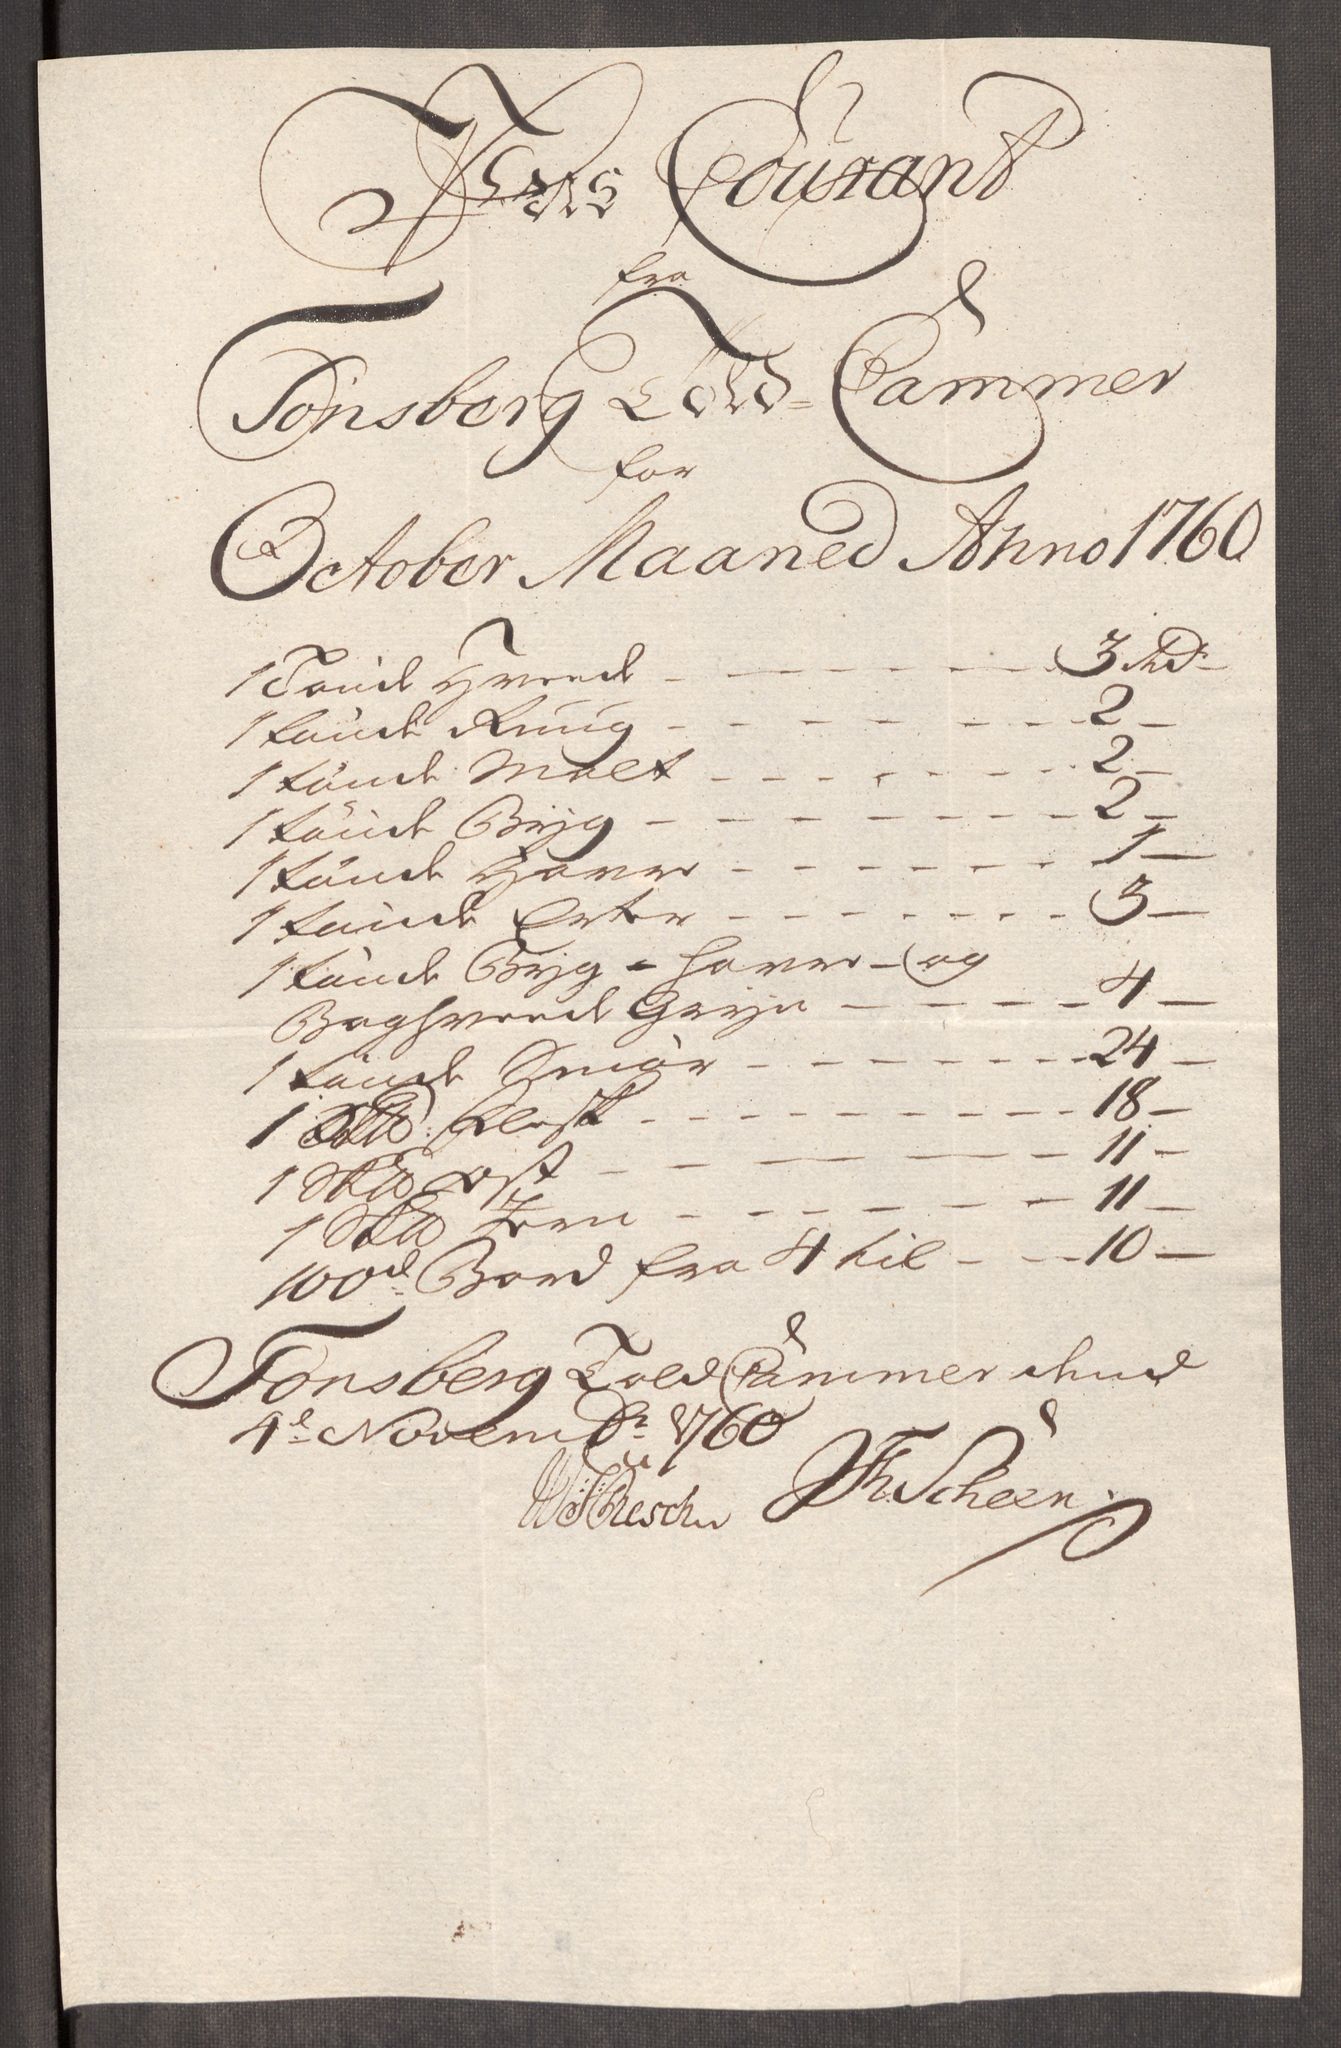 Priis Courant
fra
Tönsberg Told=Cammer
for
October Maaned Anno 1760
1 Tönde Hvede - - - - - - 3 Rd.
1 tönde Rüüg - - - - - - 2 -
1 tönde Malt - - - - - - 2 -
1 tönde Byg - - - - - - 2 -
1 tönde Havre - - - - - - 1 -
1 tönde Erter - - - - - - 3 -
1 tönde Byg - Havre - og
Boghvede Gryn - - - - 4 -
1 tönde Smör - - - - - - 24 -
1 Flesk - - - - - - 18 -
1 ost - - - - - - 11 -
1 Jern - - - - - - 11 -
100d Bord fra 4 til - - - 10 -
Tonsberg Told Cammer
4d Novembr 1760
Th: Scheen